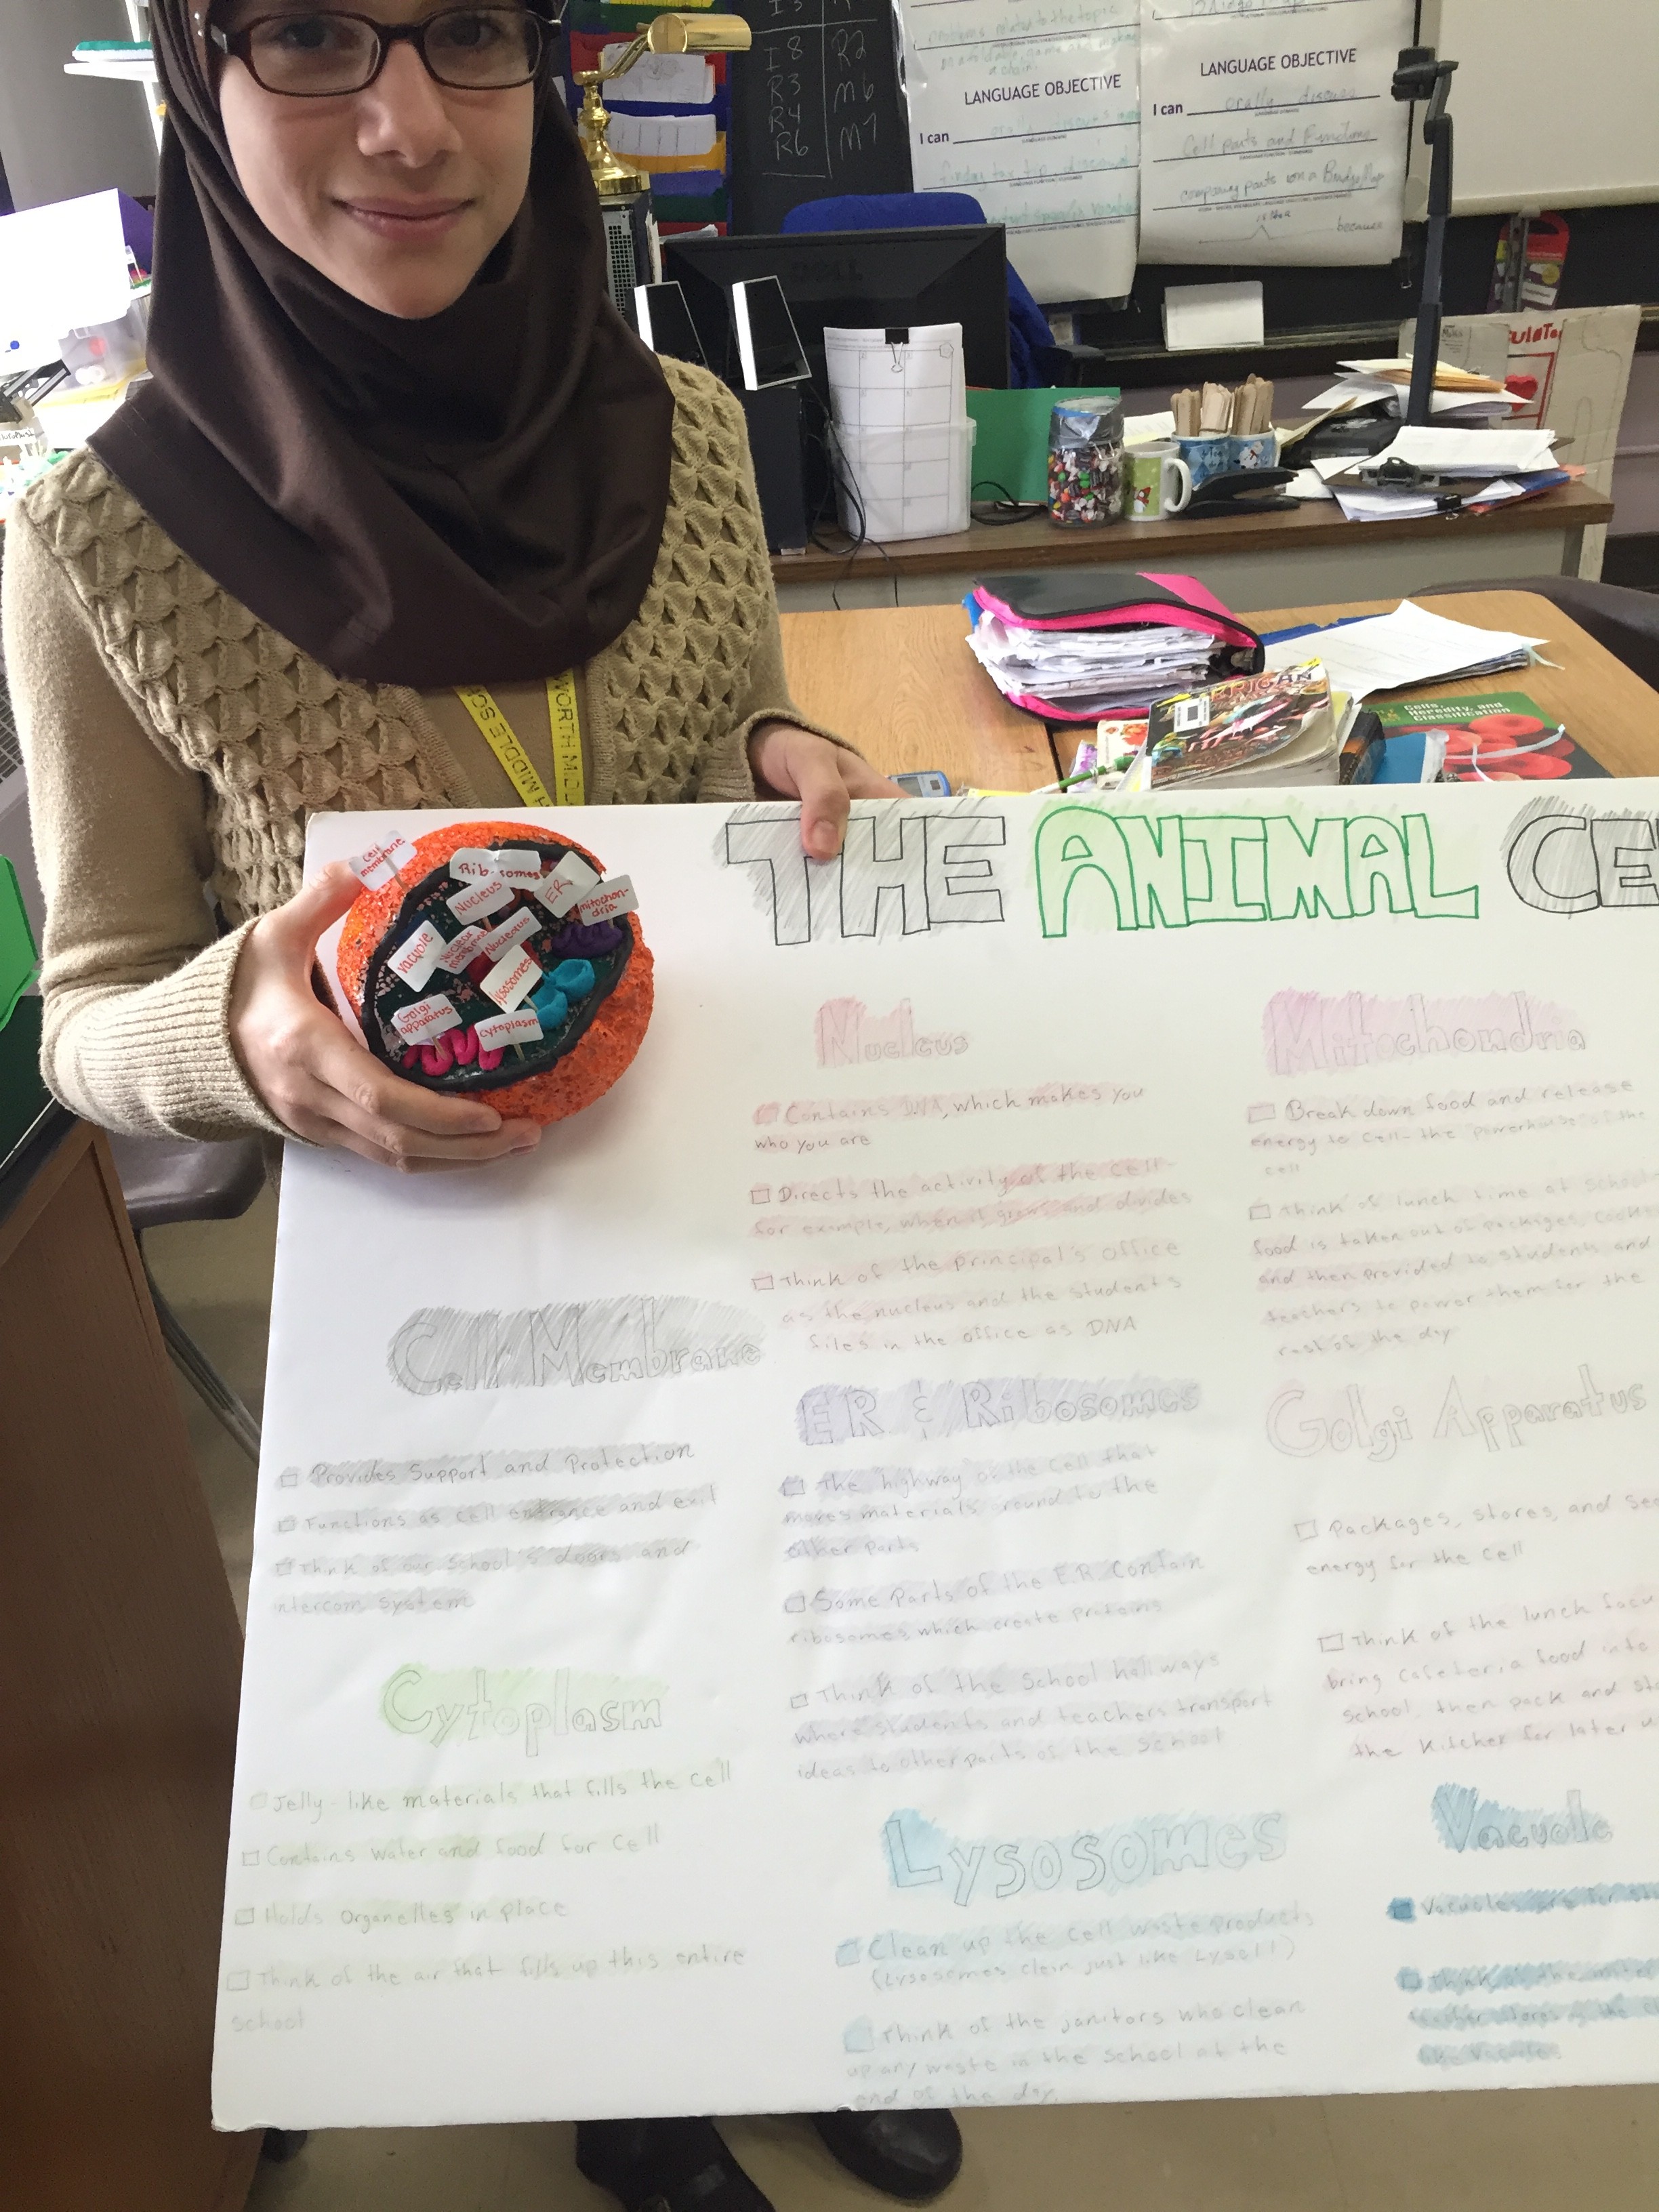 I 8 R2
R3 M6
R4 M7
R6
LANGUAGE OBJECTIVE
I can
LANGUAGE OBJECTIVE
I can orally discuss
Cell parts and Functions
comparing parts on a Bridge Map
because
DELL
WORTH MIDDLE SCH
Cells,
Heredity, and
Classification
Cell
membrane
Ribosomes
Nucleus
ER
mitochon-
dria
vacuole
Nuclear
membrane
Nucleolus
lysosomes
Golgi
apparatus
cytoplasm
THE ANIMAL CE
Nucleus
Contains DNA, which makes you
who you are
Directs the activity of the cell-
for example, when it grows and divides
Think of the principal's office
as the nucleus and the student's
files in the office as DNA
Mitochondria
Break down food and release
energy to cell - the "powerhouse" of the
cell
Think of lunch time at School-
food is taken out of packages,
and then provided to students and
teachers to power them for the
rest of the day
Cell Membrane
Provides Support and Protection
Functions as cell entrance and exit
Think of our School's doors and
ntercom System
ER & Ribosomes
The "highway" of the cell that
moves materials around to the
other parts
Some Parts of the E.R. Contain
ribosomes which create proteins
Think of the School hallways
where students and teachers transport
ideas to other parts of the School
Golgi Apparatus
Packages, stores, and
energy for the cell
Think of the lunch
bring cafeteria food into
school, then pack and
the kitchen for later
Cytoplasm
Jelly-like materials that fills the cell
Contains water and food for cell
Holds Organelles in place
Think of the air that fills up this entire
school
Lysosomes
Clean up the Cell waste products
(Lysosomes clein just like Lysol!)
Think of the janitors who clean
up any waste in the School at the
end of the day.
Vacuole
Vacuoles are for
Think of the
like Vacuoles